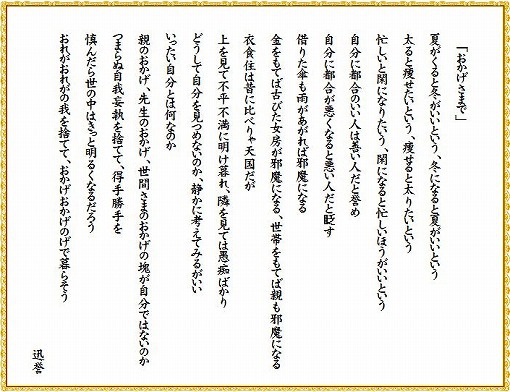 「おかげさまで」
夏がくると冬がいいという、冬になると夏がいいという
太ると痩せたいという、痩せると太りたいという
忙しいと閑になりたいう、閑になると忙しいほうがいいという
自分に都合のいい人は善い人だと誉め
自分に都合が悪くなると悪い人だと貶す
借りた傘も雨があがれば邪魔になる
金をもてば古びた女房が邪魔になる、世帯をもてば親も邪魔になる
衣食住は昔に比べりゃ天国だが
上を見て不平不満に明け暮れ、隣を見ては愚痴ばかり
どうして自分を見つめないのか、静かに考えてみるがいい
いったい自分とは何なのか
親のおかげ、先生のおかげ、世間さまのおかげの塊が自分ではないのか
つまらぬ自我妄執を捨てて、得手勝手を
慎んだら世の中はきっと明るくなるだろう
おれがおれがの我を捨てて、おかげおかげのげで暮らそう
迅誉